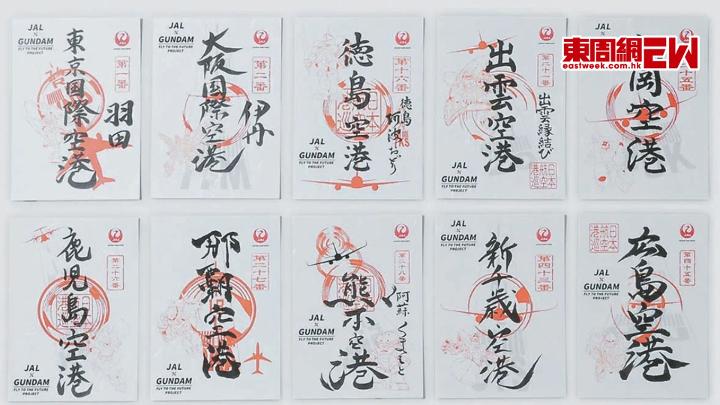 東周網EW
eastweek.com.hk
JAL
×
GUNDAM
FLY TO THE FUTURE
PROJECT
第一番
東京国際空港
羽田
JAL
×
GUNDAM
FLY TO THE FUTURE
PROJECT
第二番
大阪国際空港
伊丹
第十六番
徳島空港
徳島
阿波おどり
JAL
×
GUNDAM
FLY TO THE FUTURE
PROJECT
出雲空港
出雲縁結び
JAL
×
GUNDAM
FLY TO THE FUTURE
PROJECT
日本
航空
港巡
岡空港
JAL
×
GUNDAM
FLY TO THE FUTURE
PROJECT
第二十六番
鹿児島空港
JAL
×
GUNDAM
FLY TO THE FUTURE
PROJECT
第二十三番
那覇空港
JAL
×
GUNDAM
FLY TO THE FUTURE
PROJECT
第二十八番
熊本空港
阿蘇くまもと
JAL
×
GUNDAM
FLY TO THE FUTURE
PROJECT
第四十三番
新千歳空港
JAL
×
GUNDAM
FLY TO THE FUTURE
PROJECT
日本
航空
港巡
第四十五番
広島空港
JAL
×
GUNDAM
FLY TO THE FUTURE
PROJECT